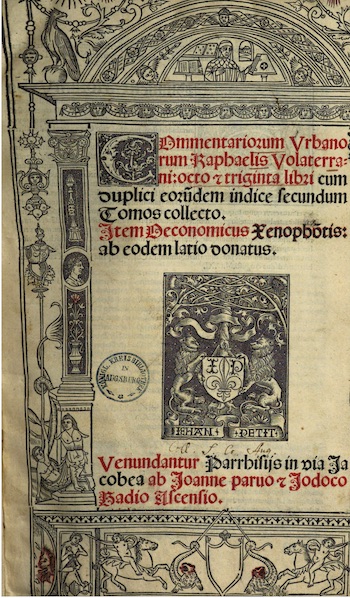 COmmentariorum Vrbano
rum Raphaelis Volaterra-
ni: octo ⁊ triginta libri cum
duplici eorūdem indice secundum
Tomos collecto.
Item Oeconomicus Xenophōtis:
ab eodem latio donatus.
I P
IEHAN PETIT
Venundantur Parrhisijs in via Ja
cobea ab Joanne paruo ⁊ Jodoco
Badio Ascensio.